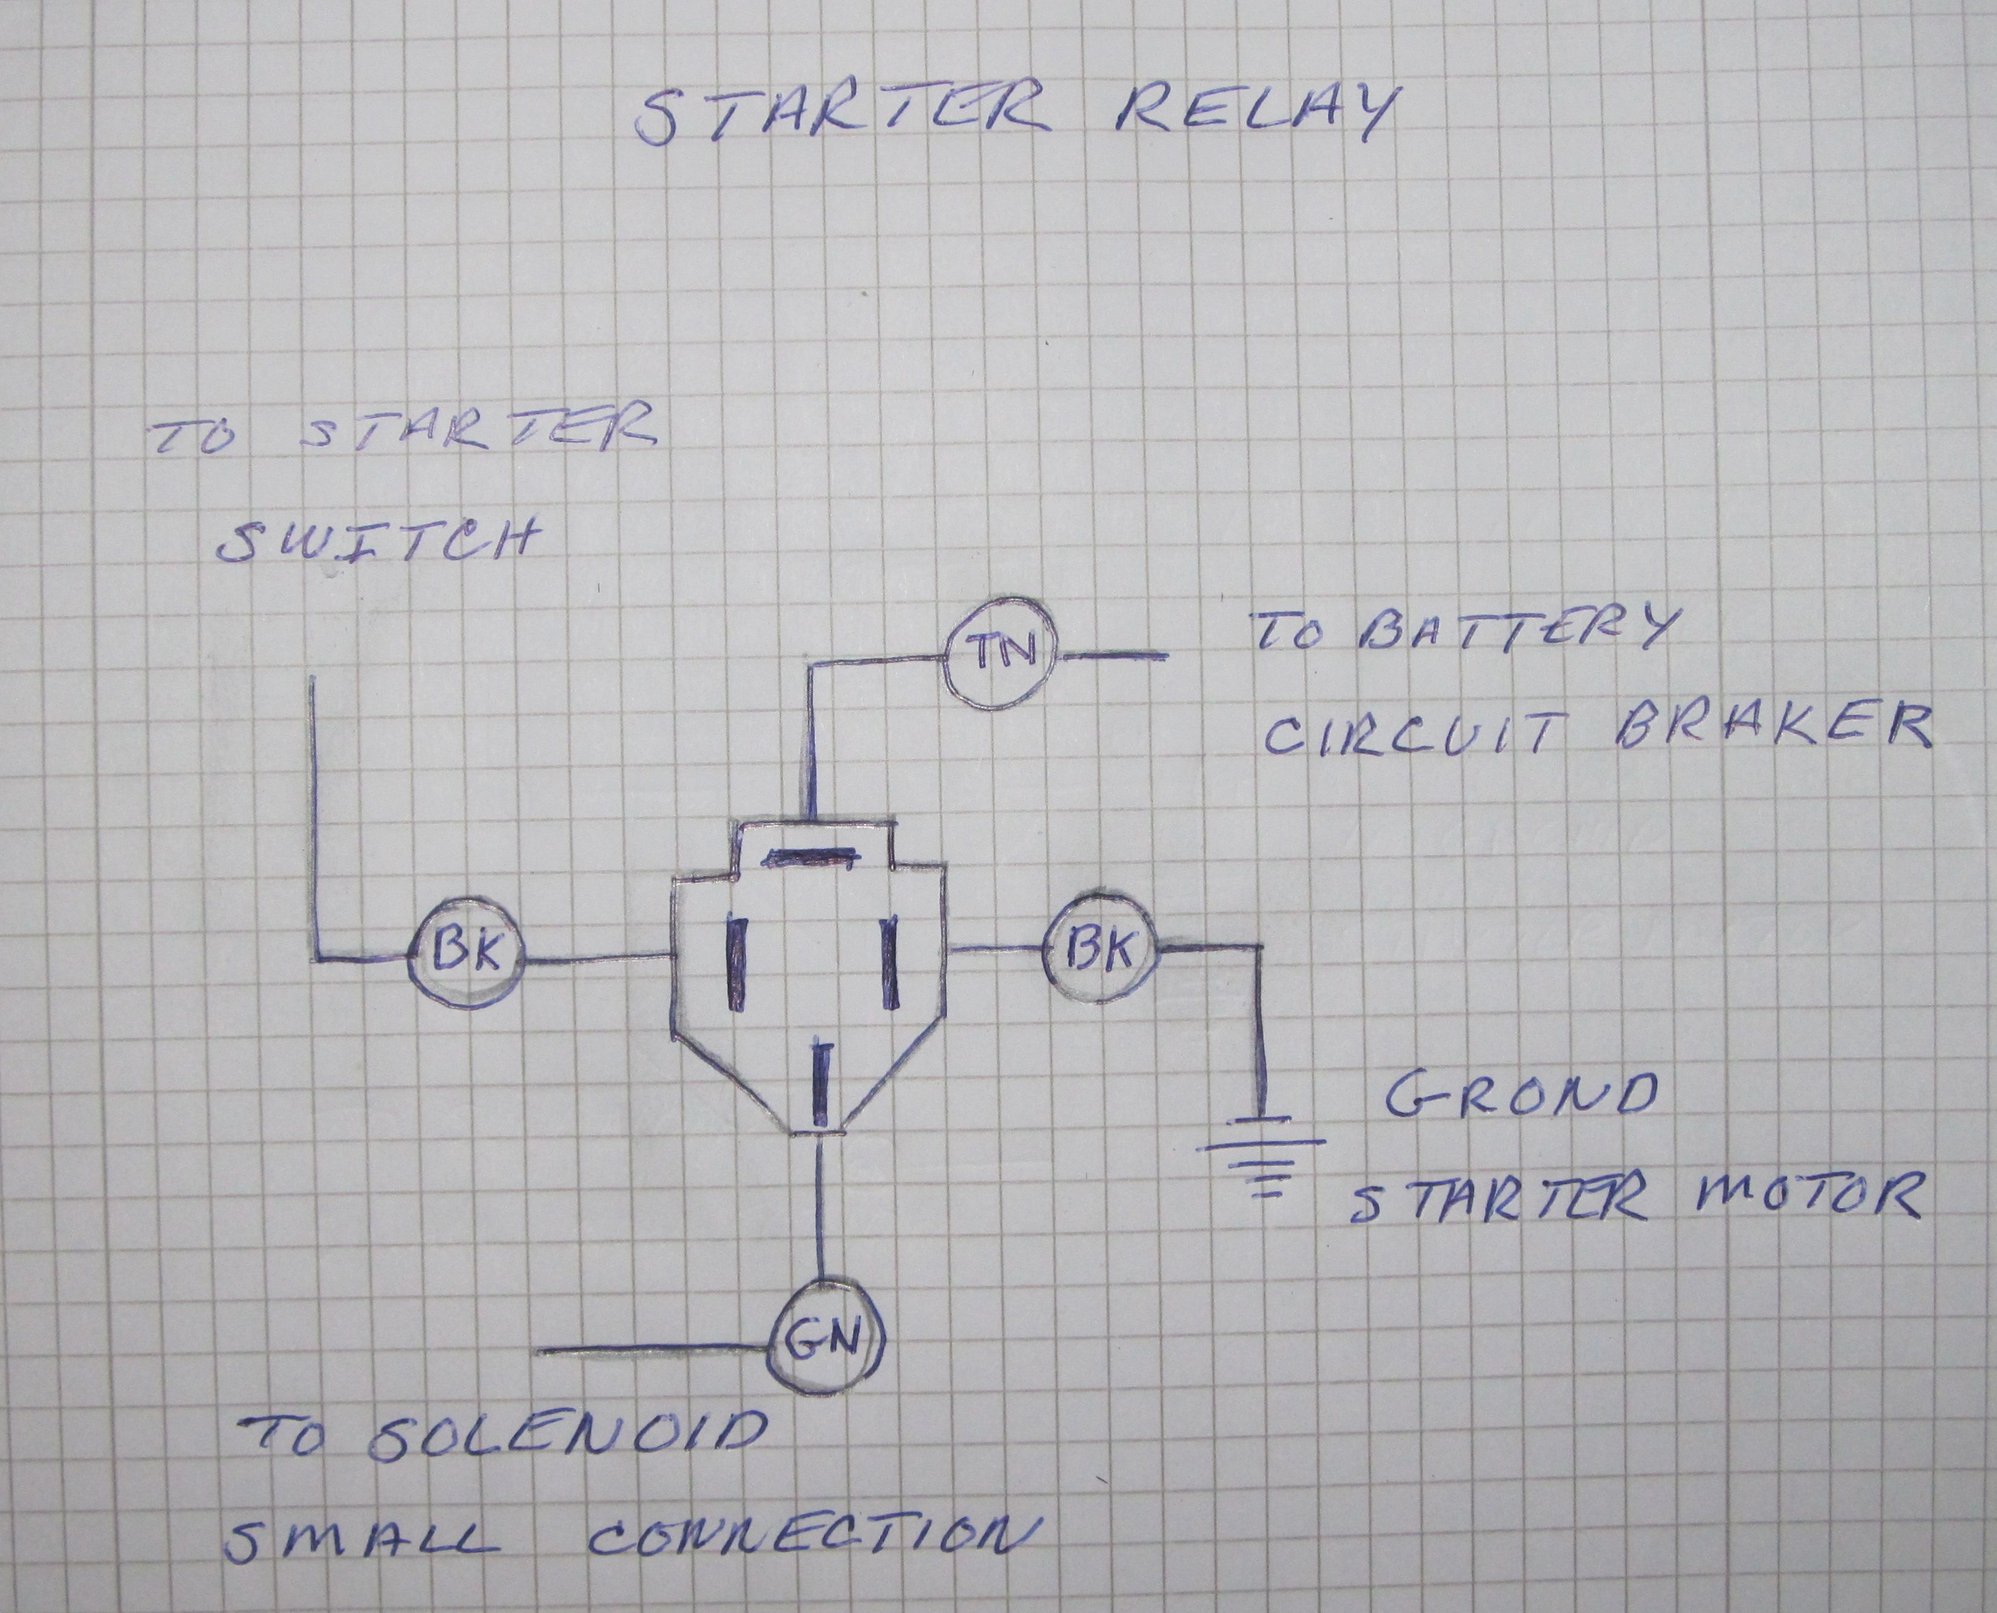 STARTER RELAY
TO STARTER
SWITCH
TN
TO BATTERY
CIRCUIT BRAKER
BK
BK
GROND
STARTER MOTOR
GN
TO SOLENOID
SMALL CONNECTION